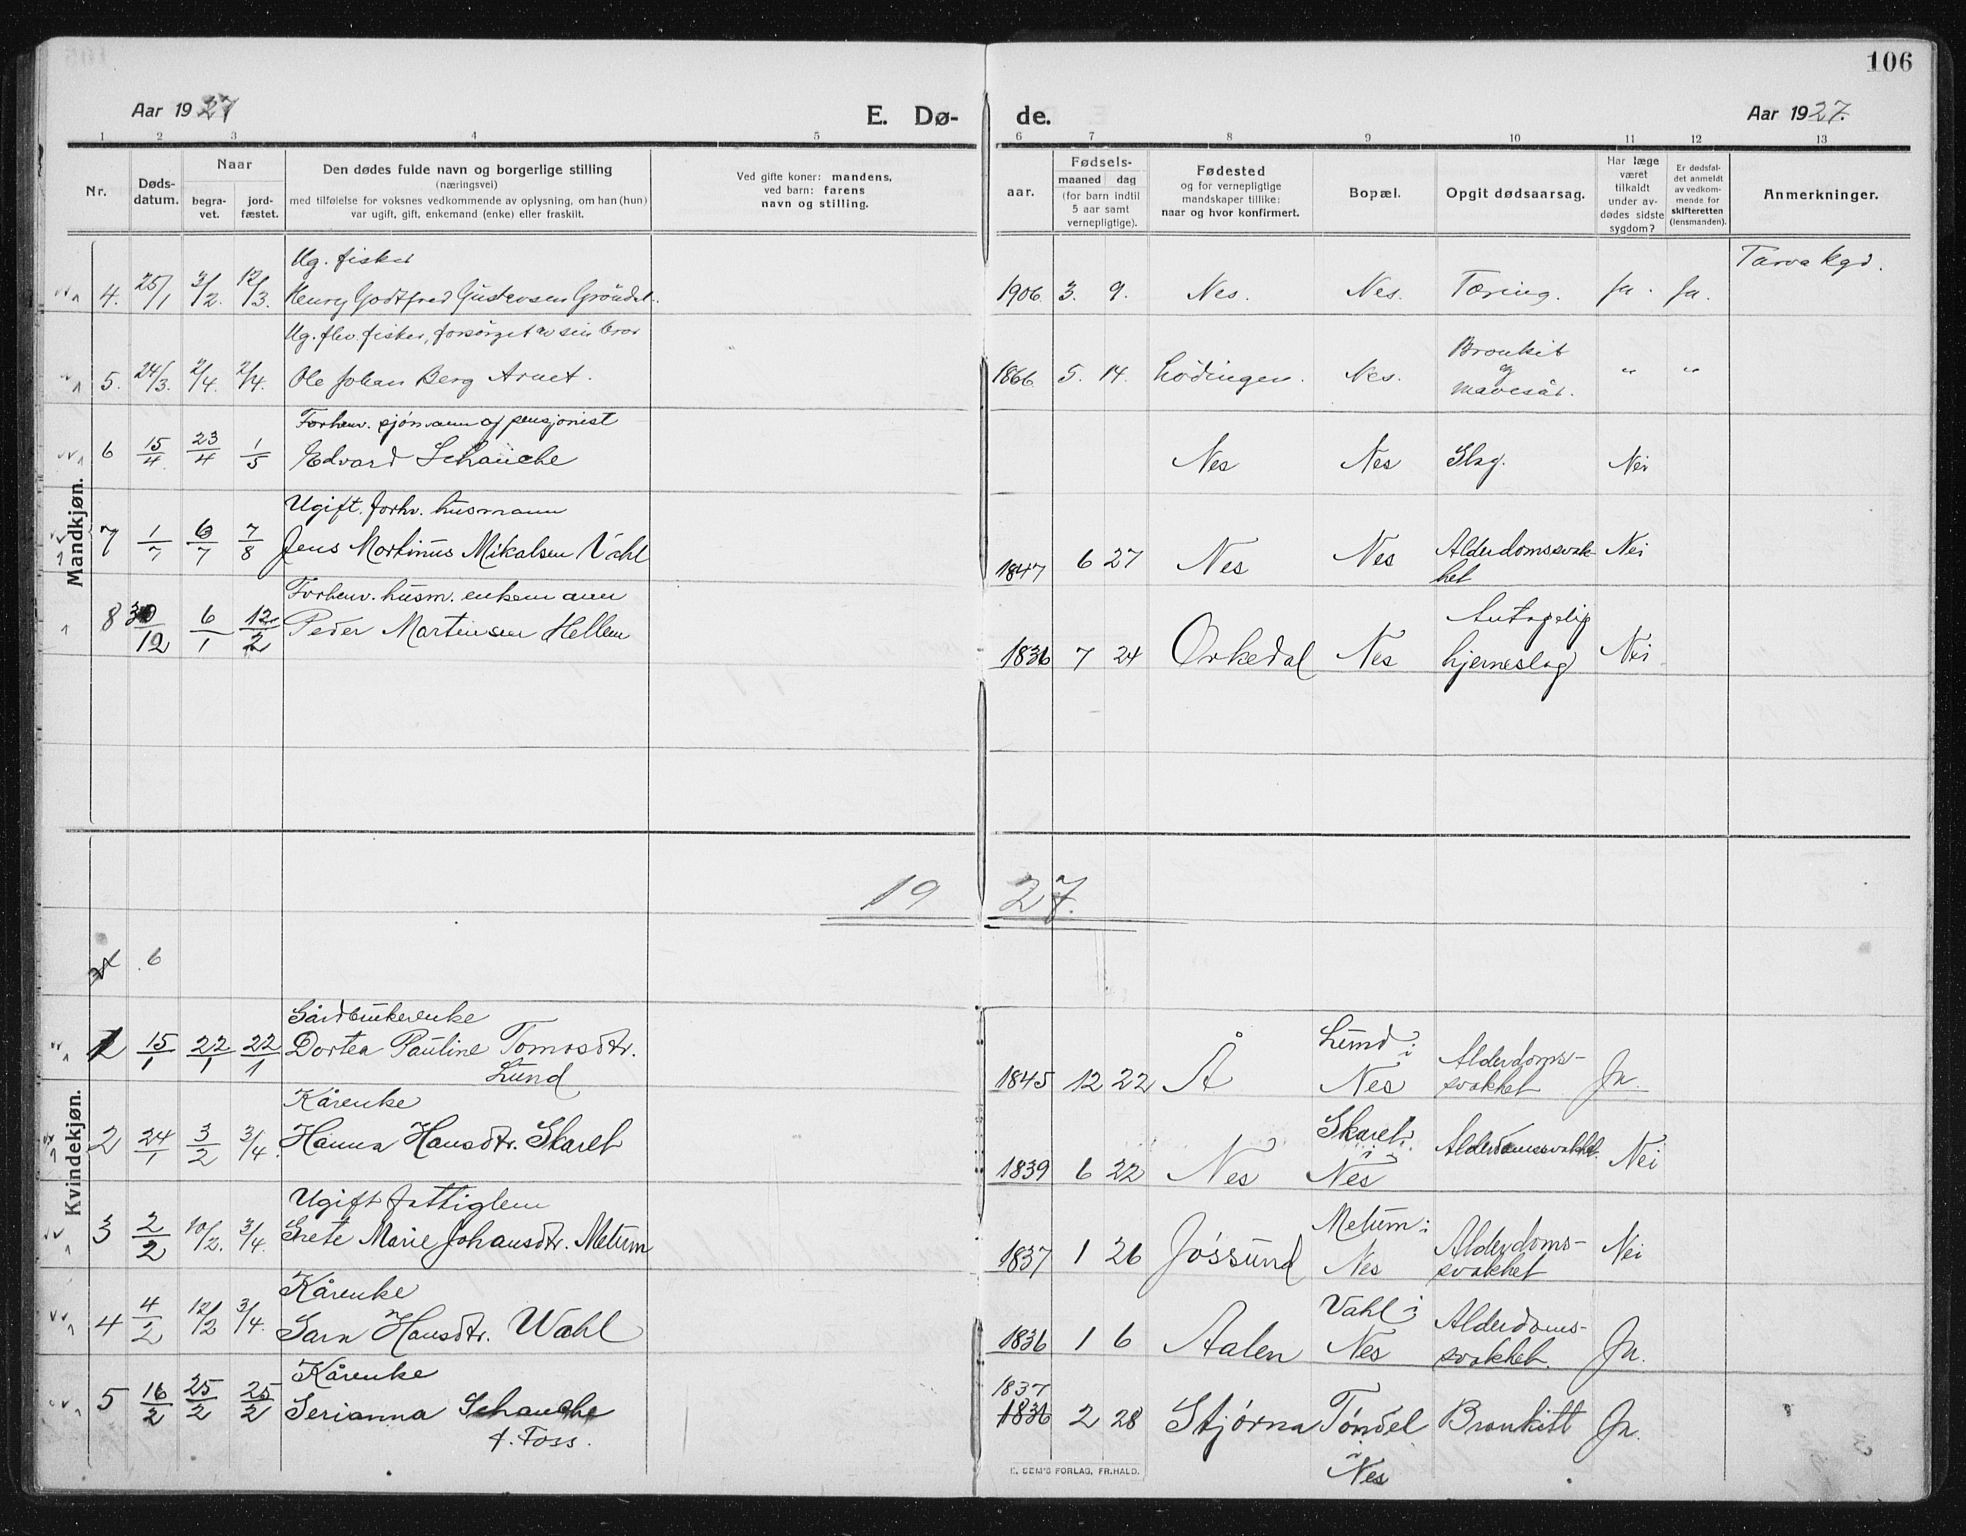 106
Aar 1927
E. Dø-
de.
Aar 1927.
1 2 3 4 5 6 7 8 9 10 11 12 13
Nr.
Døds-
datum.
Naar
begra-
vet.
jord-
fæstet.
Den dødes fulde navn og borgerlige stilling
(næringsvei)
med tilføielse for voksnes vedkommende av oplysning, om han (hun)
var ugift, gift, enkemand (enke) eller fraskilt.
Ved gifte koner: mandens,
ved barn: farens
navn og stilling.
aar.
Fødsels-
maaned dag
(for barn indtil
5 aar samt
vernepligtige).
Fødested
og for vernepligtige
mandskaper tillike:
naar og hvor konfirmert.
Bopæl.
Opgit dødsaarsag.
Har læge
været
tilkaldt
under av-
dødes sidste
sygdom?
Er dødsfal-
det anmeldt
av vedkom-
mende for
skifteretten
(lensmanden).
Anmerkninger.
Mandkjøn.
Ug. fisker
4. 25/1 3/2. 12/3. Henry Godtfred Gustavsen Grøndal. 1906 3. 9. Nes. Nes. Tæring. Ja. Ja. Tarva kgd.
Ug. flv. fisker, forsørget av sin bror
5. 24/3. 2/4. 2/4. Ole Johan Berg Arnet. 1866 5. 14. Lødingen. Nes. Bronkit
og
mavesår. " "
Forhenv. sjømann og pensjonist
6 15/4 23/4 1/5 Edvard Schanche Nes Nes Slag. Nei
Ugift. forhv. husmann
7 1/7 6/7 7/8 Jens Martinus Mikalsen Vahl 1847 6 27 Nes Nes Alderdomssvak-
het Nei
Forhenv. husm. enkemann
8 30/12 6/1 12/2 Peder Mortensen Hellem 1836 7 24 Orkedal Nes Antagelig
hjerneslag Nei
19 27.
6
Kvindekjøn.
Gårdbrukerenke
1 15/1 22/1 22/1 Dortea Pauline Tomasdtr.
Lund 1845 12 22 Å Lund i
Nes Alderdoms-
svakhet Ja.
Kårenke
2 24/1 3/2 3/4. Hanna Hansdtr. Skaret 1839 6 22 Nes Skaret
i
Nes Alderdomssvakhet. Nei
Ugift fattiglem
3 2/2 10/2. 3/4. Grete Marie Johansdtr. Melum 1837 1 26 Jøssund Melum i
Nes Alderdoms-
svakhet Nei
Kårenke
4 4/2 12/2 3/4. Sara Hansdtr. Wahl 1836 1 6 Aalen Vahl i
Nes Alderdoms-
svakhet. Ja.
Kårenke
5 16/2 25/2 25/2 Serianna Schanche
f. Foss. 1837
1836 2 28 Stjørna Tøndel
i
Nes Bronkitt Ja.
E. SEM'S FORLAG, FR.HALD.